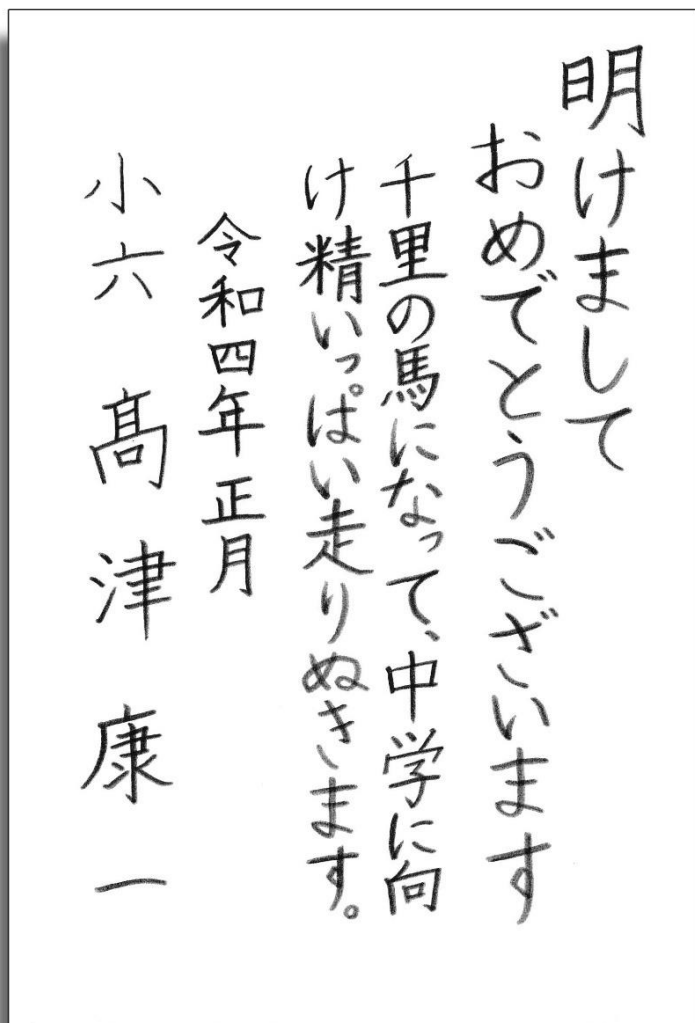 明けまして
おめでとうございます
千里の馬になって、中学に向
け精いっぱい走りぬきます。
令和四年 正月
小六 髙津康一